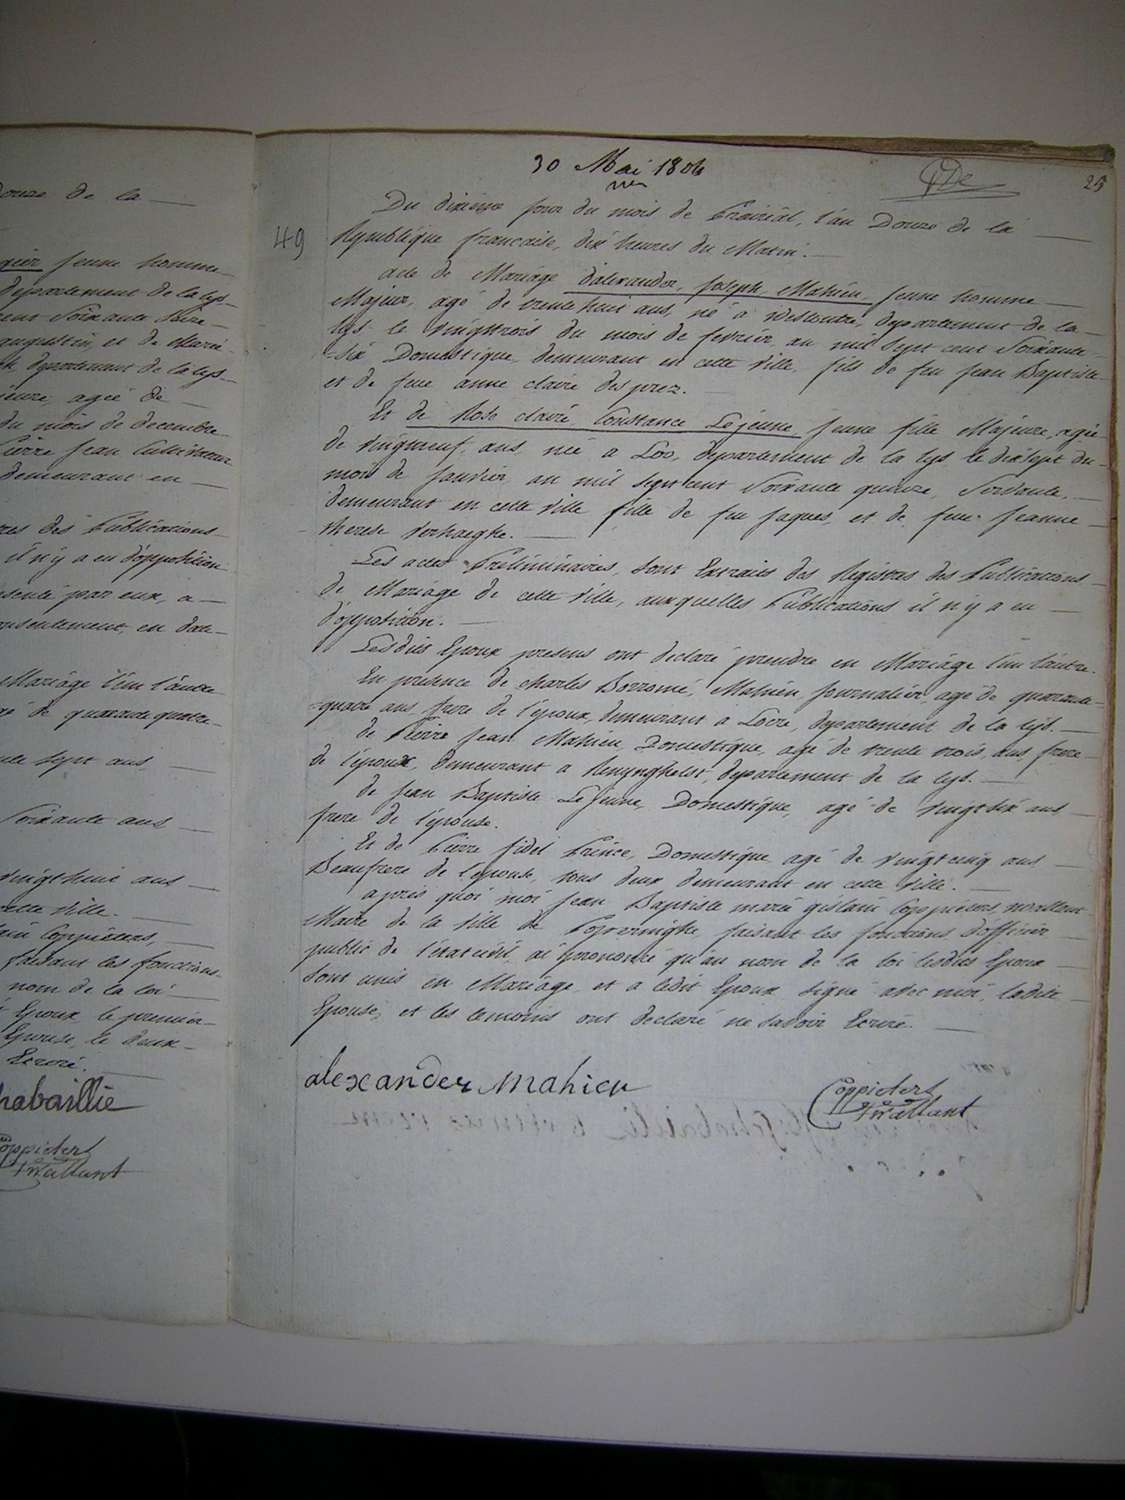 Douze de la
jeune homme
département de la lys
cent Soixante
augustin, et de Marie
département de la lys
agée de
du mois de decembre
Pierre Jean Cultivateur
demeurant en
des Publications
il n'y a eu d'opposition
par eux, a
consentement, en date
Mariage l'un l'autre
de quarante quatre
sept ans
Soixante ans
vingthuit ans
cette Ville.
Coppieters,
faisant les fonctions
nom de la loi
Epoux le premier
Epouse, le deux
Ecrire.
habaillie
Coppieters
t'wallant
30 Mai 1804
25
49
Du dixieme jour du mois de Prairial, l'an Douze de la
Republique française, dix heures du Matin.
acte de Mariage d'alexander, Joseph Mahieu, Jeune homme
Majeur, agé de trente huit ans, né a Westoutre, département de la
lys le vingttrois du mois de fevrier an mil sept cent Soixante
Six Domestique, demeurant en cette Ville, fils de feu Jean Baptiste
et de feue anne claire desprez.
Et de Rose claire Constance Lejeune jeune fille Majeure, agée
de vingtneuf ans, née a Loo, département de la lys le dixsept du
mois de Janvier an mil sept cent Soixante quinze, Servante,
demeurant en cette Ville fille de feu Jaques, et de feue Jeanne
therese Verhaeghe.
Les actes Préliminaires, Sont Extraits des Registres des Publications
de Mariage de cette Ville, auxquelles Publications il n'y a eu
d'opposition.
Lesdits Epoux presens ont declaré prendre en Mariage l'un l'autre.
En presence de charles Borromé, Mahieu, Journalier, agé de quarante
quatre ans frere de l'époux, demeurant a Locre, département de la lys.
de Pierre Jean Mahieu, Domestique, agé de trente trois, ans, frere
de l'époux, demeurant a Renynghelst, département de la lys.
de Jean Baptiste Lejeune, Domestique, agé de vingtsix ans
frere de l'épouse.
Et de Pierre fidel Prince, Domestique, agé de vingtcinq ans
Beaufrere de l'epouse, tous deux demeurant en cette Ville.
après quoi moi Jean Baptiste marie gislain Coppieters t'wallant
Maire de la Ville de Poperinghe, faisant les fonctions d'officier
public de l'état civil, ai prononcé qu'au nom de la loi lesdits Epoux
Sont unis en Mariage, et a ledit Epoux Signé avec moi, ladite
Epouse, et les temoins ont declaré ne Savoir Ecrire.
alexander Mahieu
Coppieters
t'wallant